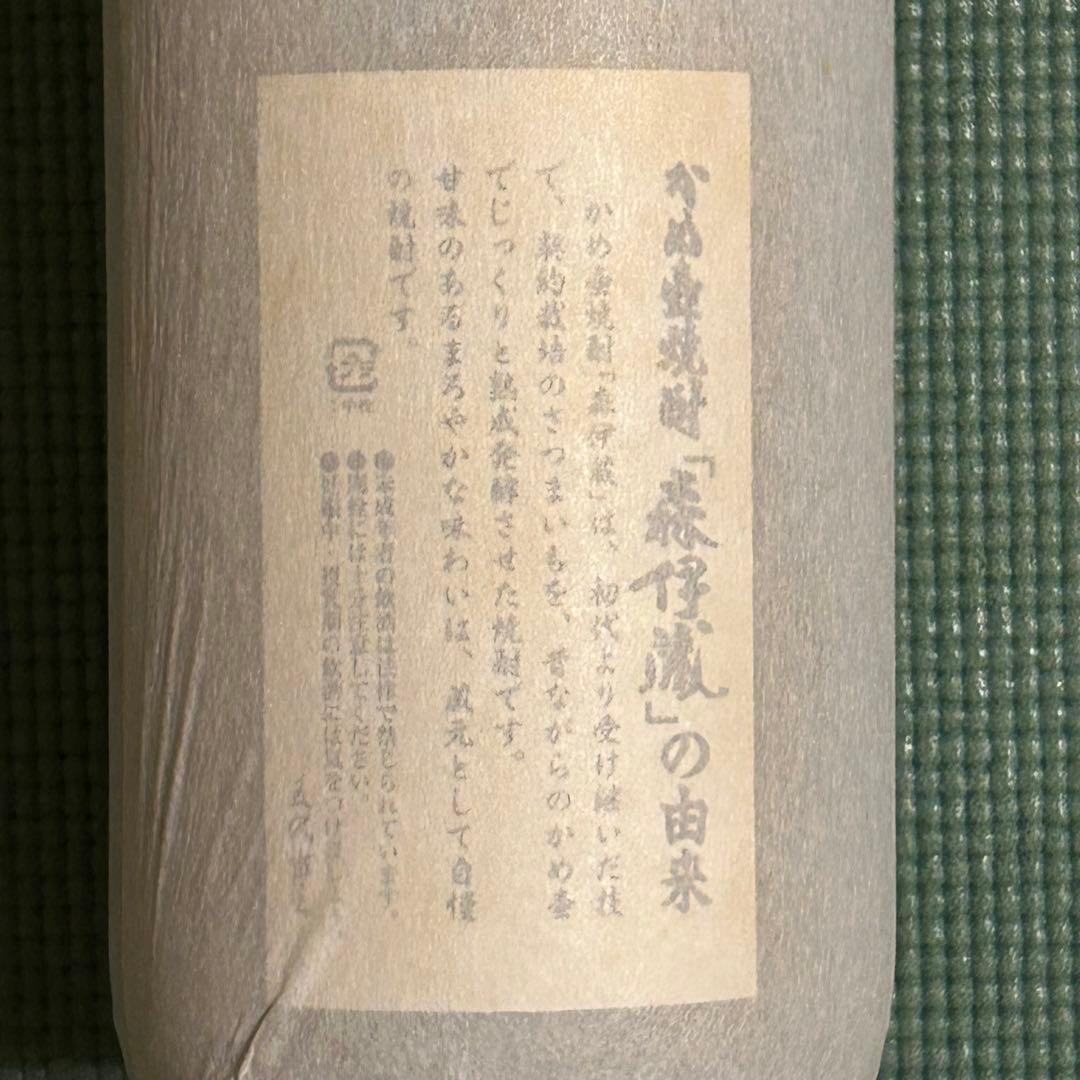 かめ壷焼酎「森伊蔵」の由来
かめ壷焼酎「森伊蔵」は、初代より受け継いだ技
て、契約栽培のさつまいもを、昔ながらのかめ壷
でじっくりと熟成発酵させた焼酎です。
甘味のあるまろやかな味わいは、蔵元として自慢
の焼酎です。
未成年者の飲酒は法律で禁じられています。
開栓には十分注意してください。
妊娠中・授乳期の飲酒には気をつけ